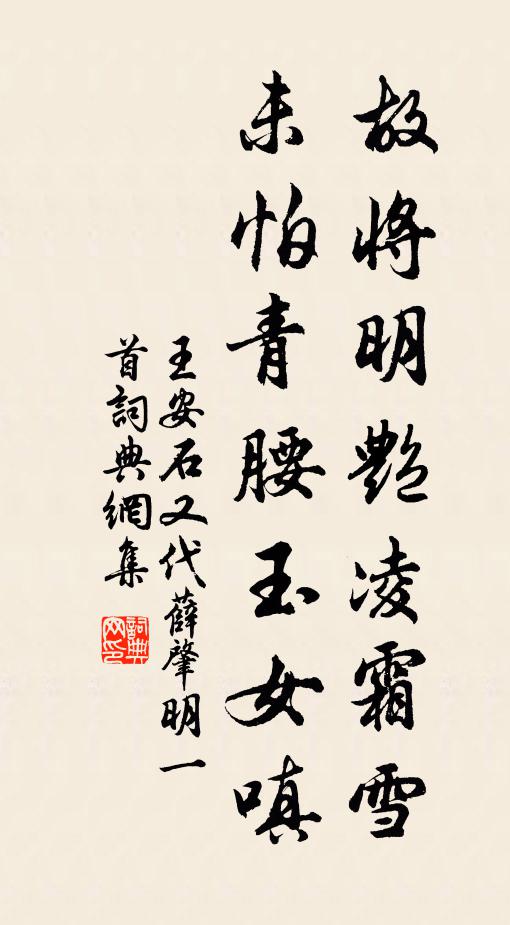 故將明艷凌霜雪
未怕青腰玉女嗔
王安石又代薛肇明一
首詞典網集
詞典網印